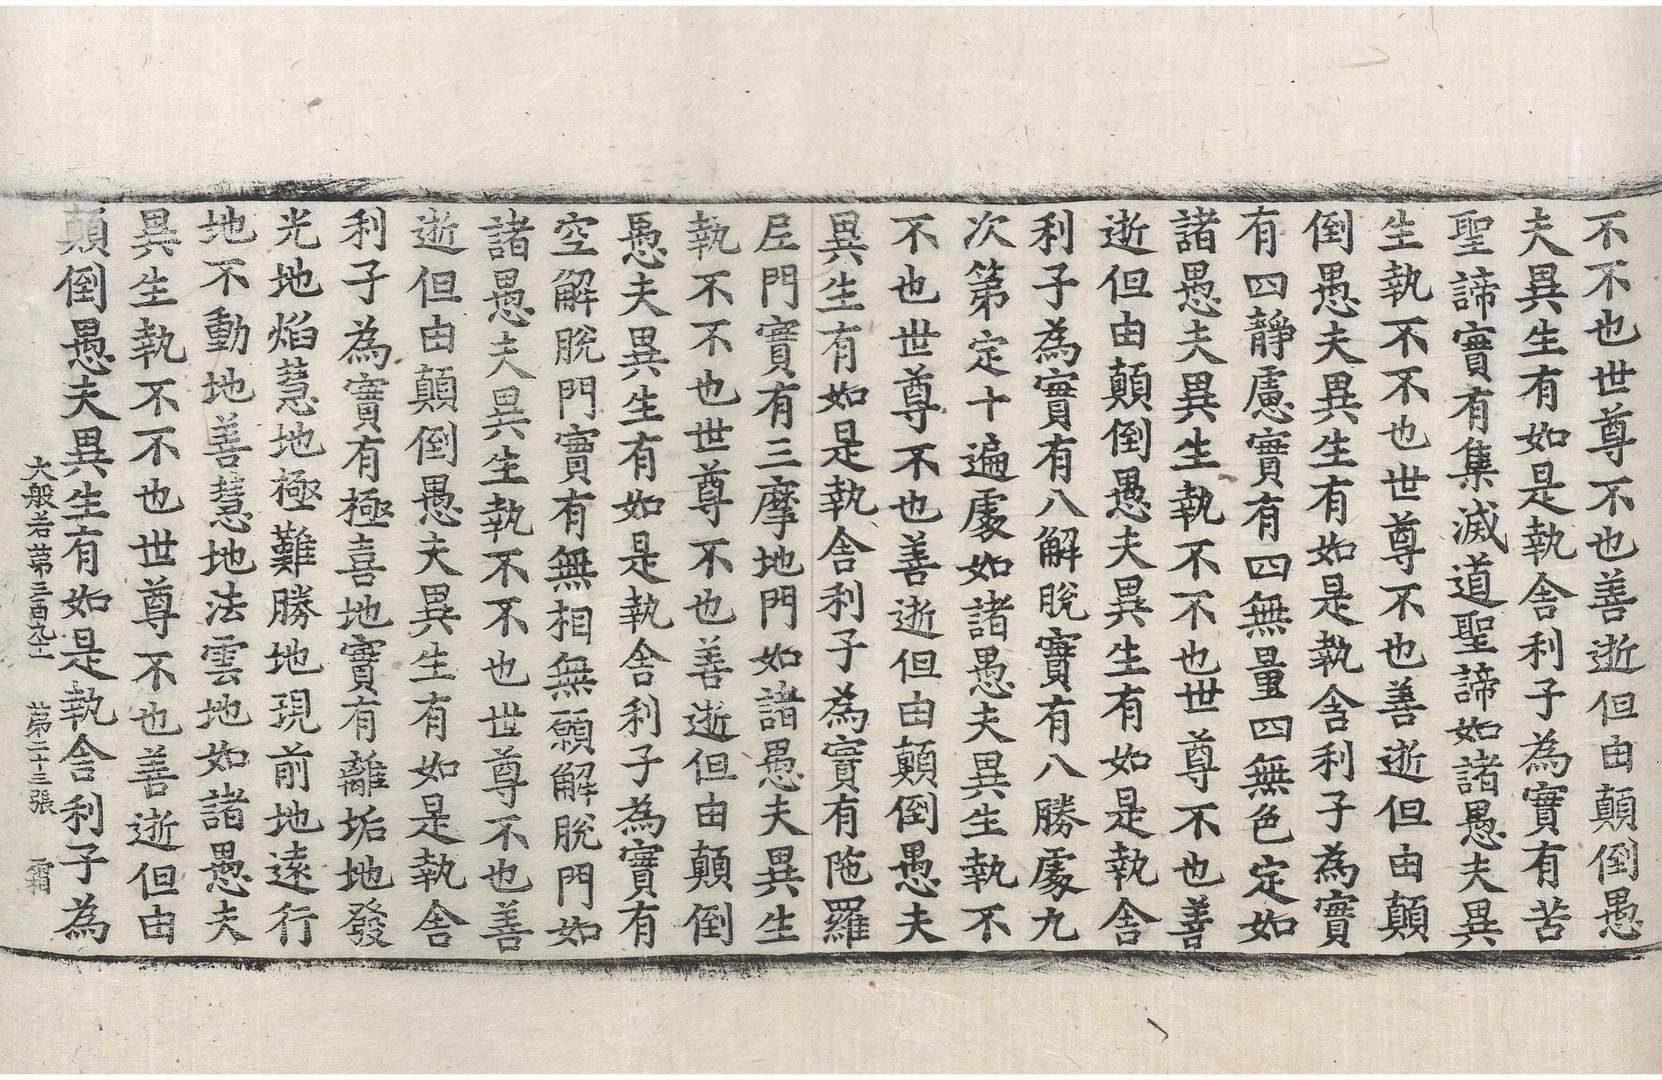 不不也世尊不也善逝但由顛倒愚
夫異生有如是執舍利子為實有苦
聖諦實有集滅道聖諦如諸愚夫異
生執不不也世尊不也善逝但由顛
倒愚夫異生有如是執舍利子為實
有四靜慮實有四無量四無色定如
諸愚夫異生執不不也世尊不也善
逝但由顛倒愚夫異生有如是執舍
利子為實有八解脫實有八勝處九
次第定十遍處如諸愚夫異生執不
不也世尊不也善逝但由顛倒愚夫
異生有如是執舍利子為實有陁羅
尼門實有三摩地門如諸愚夫異生
執不不也世尊不也善逝但由顛倒
愚夫異生有如是執舍利子為實有
空解脫門實有無相無願解脫門如
諸愚夫異生執不不也世尊不也善
逝但由顛倒愚夫異生有如是執舍
利子為實有極喜地實有離垢地發
光地焰慧地極難勝地現前地遠行
地不動地善慧地法雲地如諸愚夫
異生執不不也世尊不也善逝但由
顛倒愚夫異生有如是執舍利子為
大般若第三百九十一 第二十三張 霜